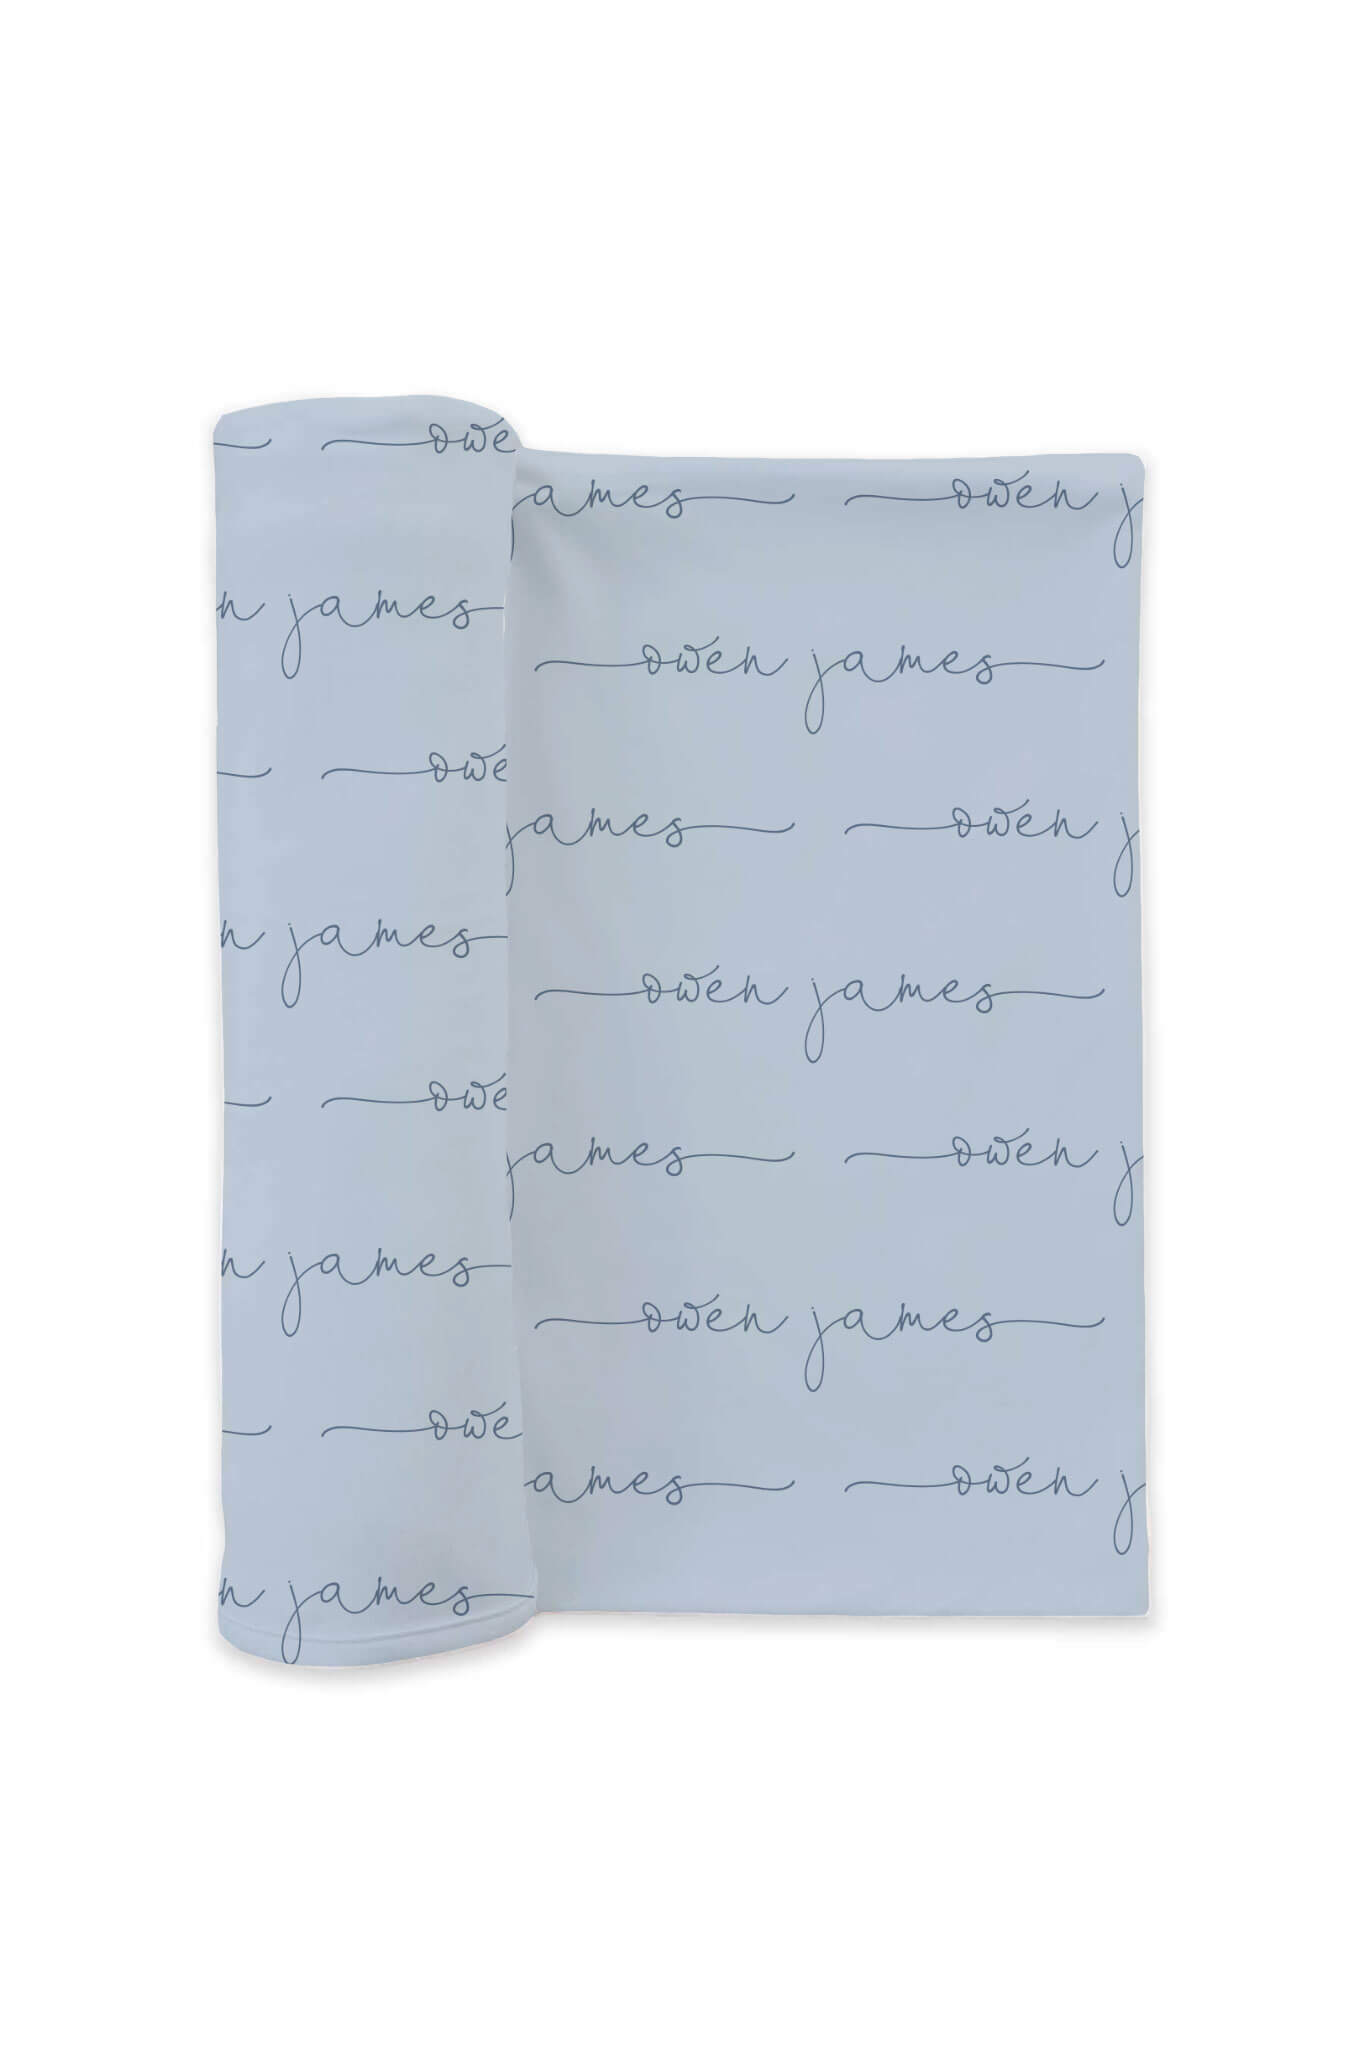 owe
ames owen j
n james
owen james
owe
james owen j
n james
owen james
owe
james owen j
n james
owen james
owe
ames owen j
n james